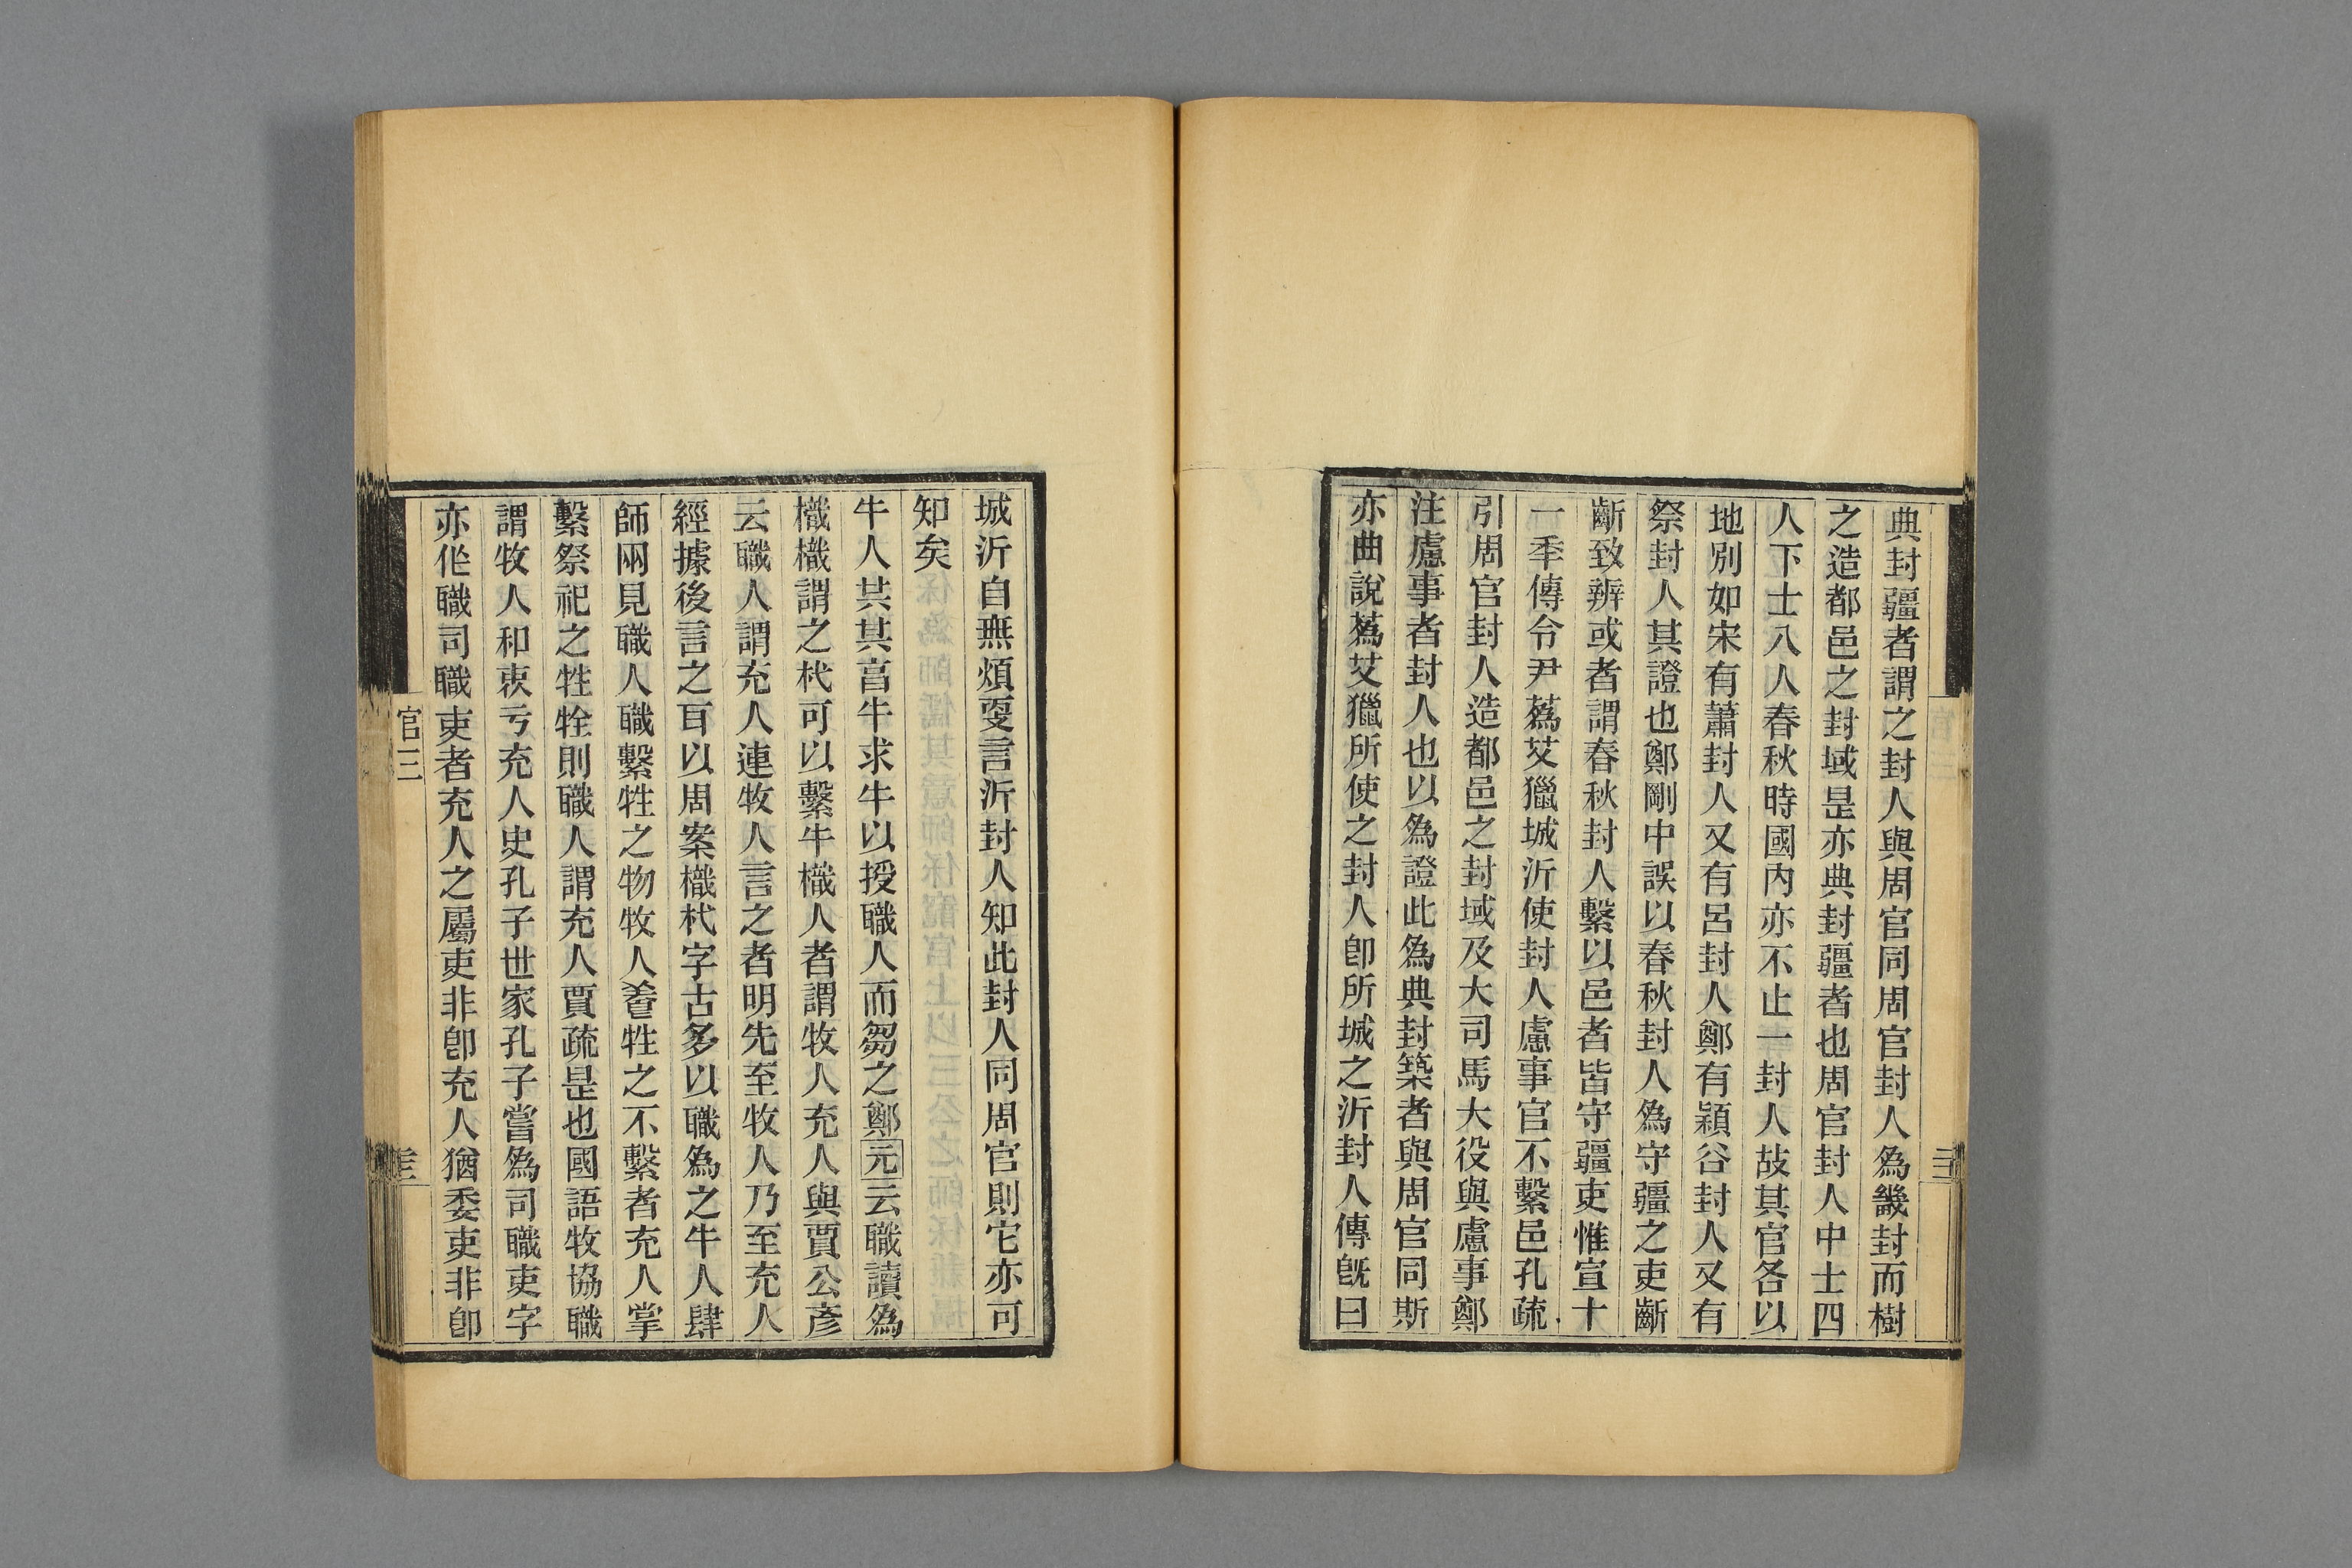 典封疆者謂之封人與周官同周官封人爲畿封而樹
之造都邑之封域是亦典封疆者也周官封人中士四
人下士八人春秋時國內亦不止一封人故其官各以
地別如宋有蕭封人又有呂封人鄭有潁谷封人又有
祭封人其證也鄭剛中誤以春秋封人爲守疆之吏齗
齗致辨或者謂春秋封人繫以邑者皆守疆吏惟宣十
一秊傳令尹蔿艾獵城沂使封人慮事官不繫邑孔疏
引周官封人造都邑之封域及大司馬大役與慮事鄭
注慮事者封人也以爲證此爲典封築者與周官同斯
亦曲說蔿艾獵所使之封人卽所城之沂封人傳旣曰
城沂自無煩㪅言沂封人知此封人同周官則它亦可
知矣
牛人共其亯牛求牛以授職人而芻之鄭元云職讀爲
樴樴謂之杙可以繫牛樴人者謂牧人充人與賈公彥
云職人謂充人連牧人言之者明先至牧人乃至充人
經據後言之耳以周案樴杙字古多以職爲之牛人肆
師兩見職人職繫牲之物牧人養牲之不繫者充人掌
繫祭祀之牲牷則職人謂充人賈疏是也國語牧協職
謂牧人和衷亏充人史孔子世家孔子嘗爲司職吏字
亦作職司職吏者充人之屬吏非卽充人猶委吏非卽
官三